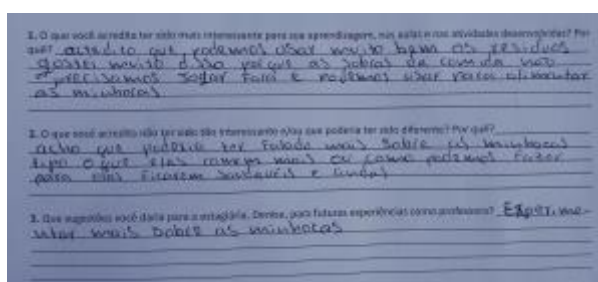 1. O que você acredita ter sido mais interessante para sua aprendizagem, nas aulas e nas atividades desenvolvidas? Por
quê? acredito que podemos usar muito bem os residuos
gostei muito disso porque as sobras da comida não
precisamos jogar fora e podemos usar para alimentar
as minhocas
2. O que você acredita não ter sido tão interessante e/ou que poderia ter sido diferente? Por quê?
acho que poderia ter falado mais sobre as minhocas
tipo o que elas comem mais ou como podemos fazer
para elas ficarem saudaveis e lindas
3. Que sugestões você daria para a estagiária, Denise, para futuras experiências como professora? Experime-
ntar mais sobre as minhocas